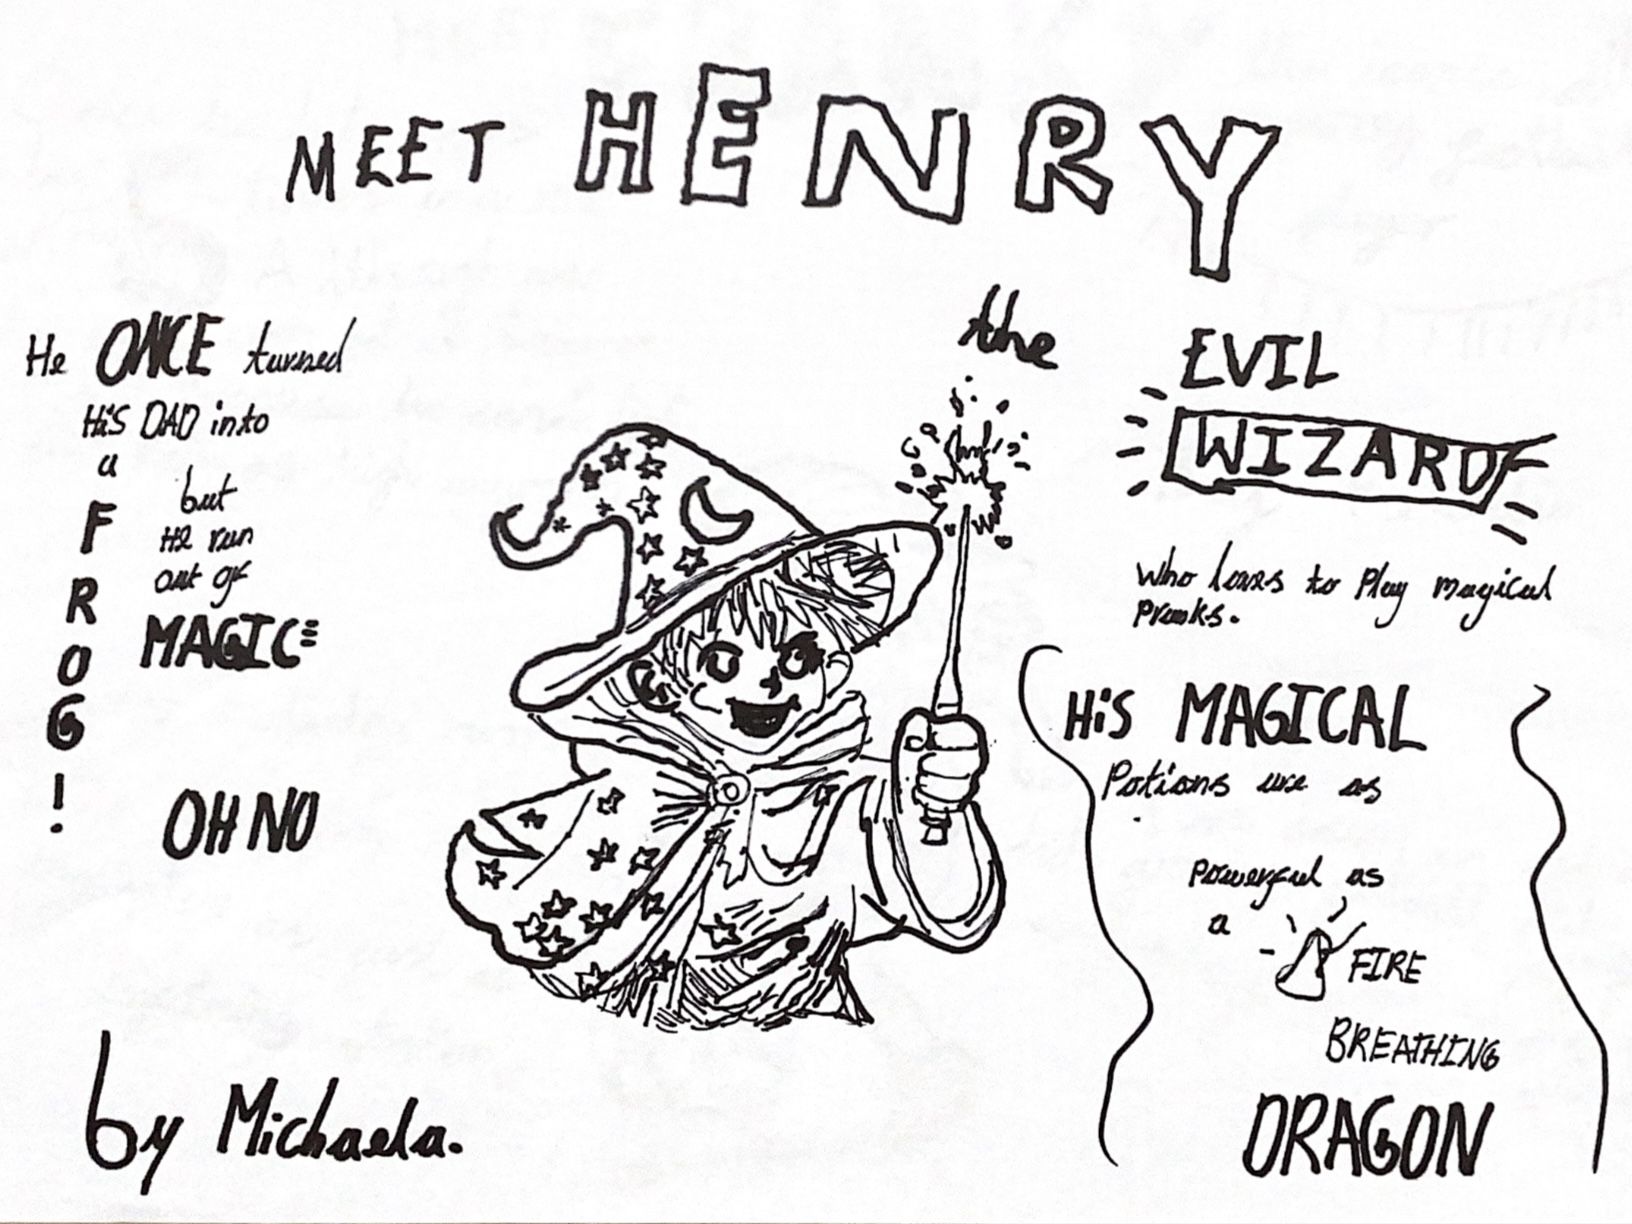 MEET HENRY
the
EVIL
WIZARD
who loves to play magical
pranks.
He ONCE turned
HiS DAD into
a
FROG!
but
He run
out of
MAGIC
OH NO
HiS MAGICAL
Potions are as
Powerful as
a FIRE
BREATHING
DRAGON
by Michaela.